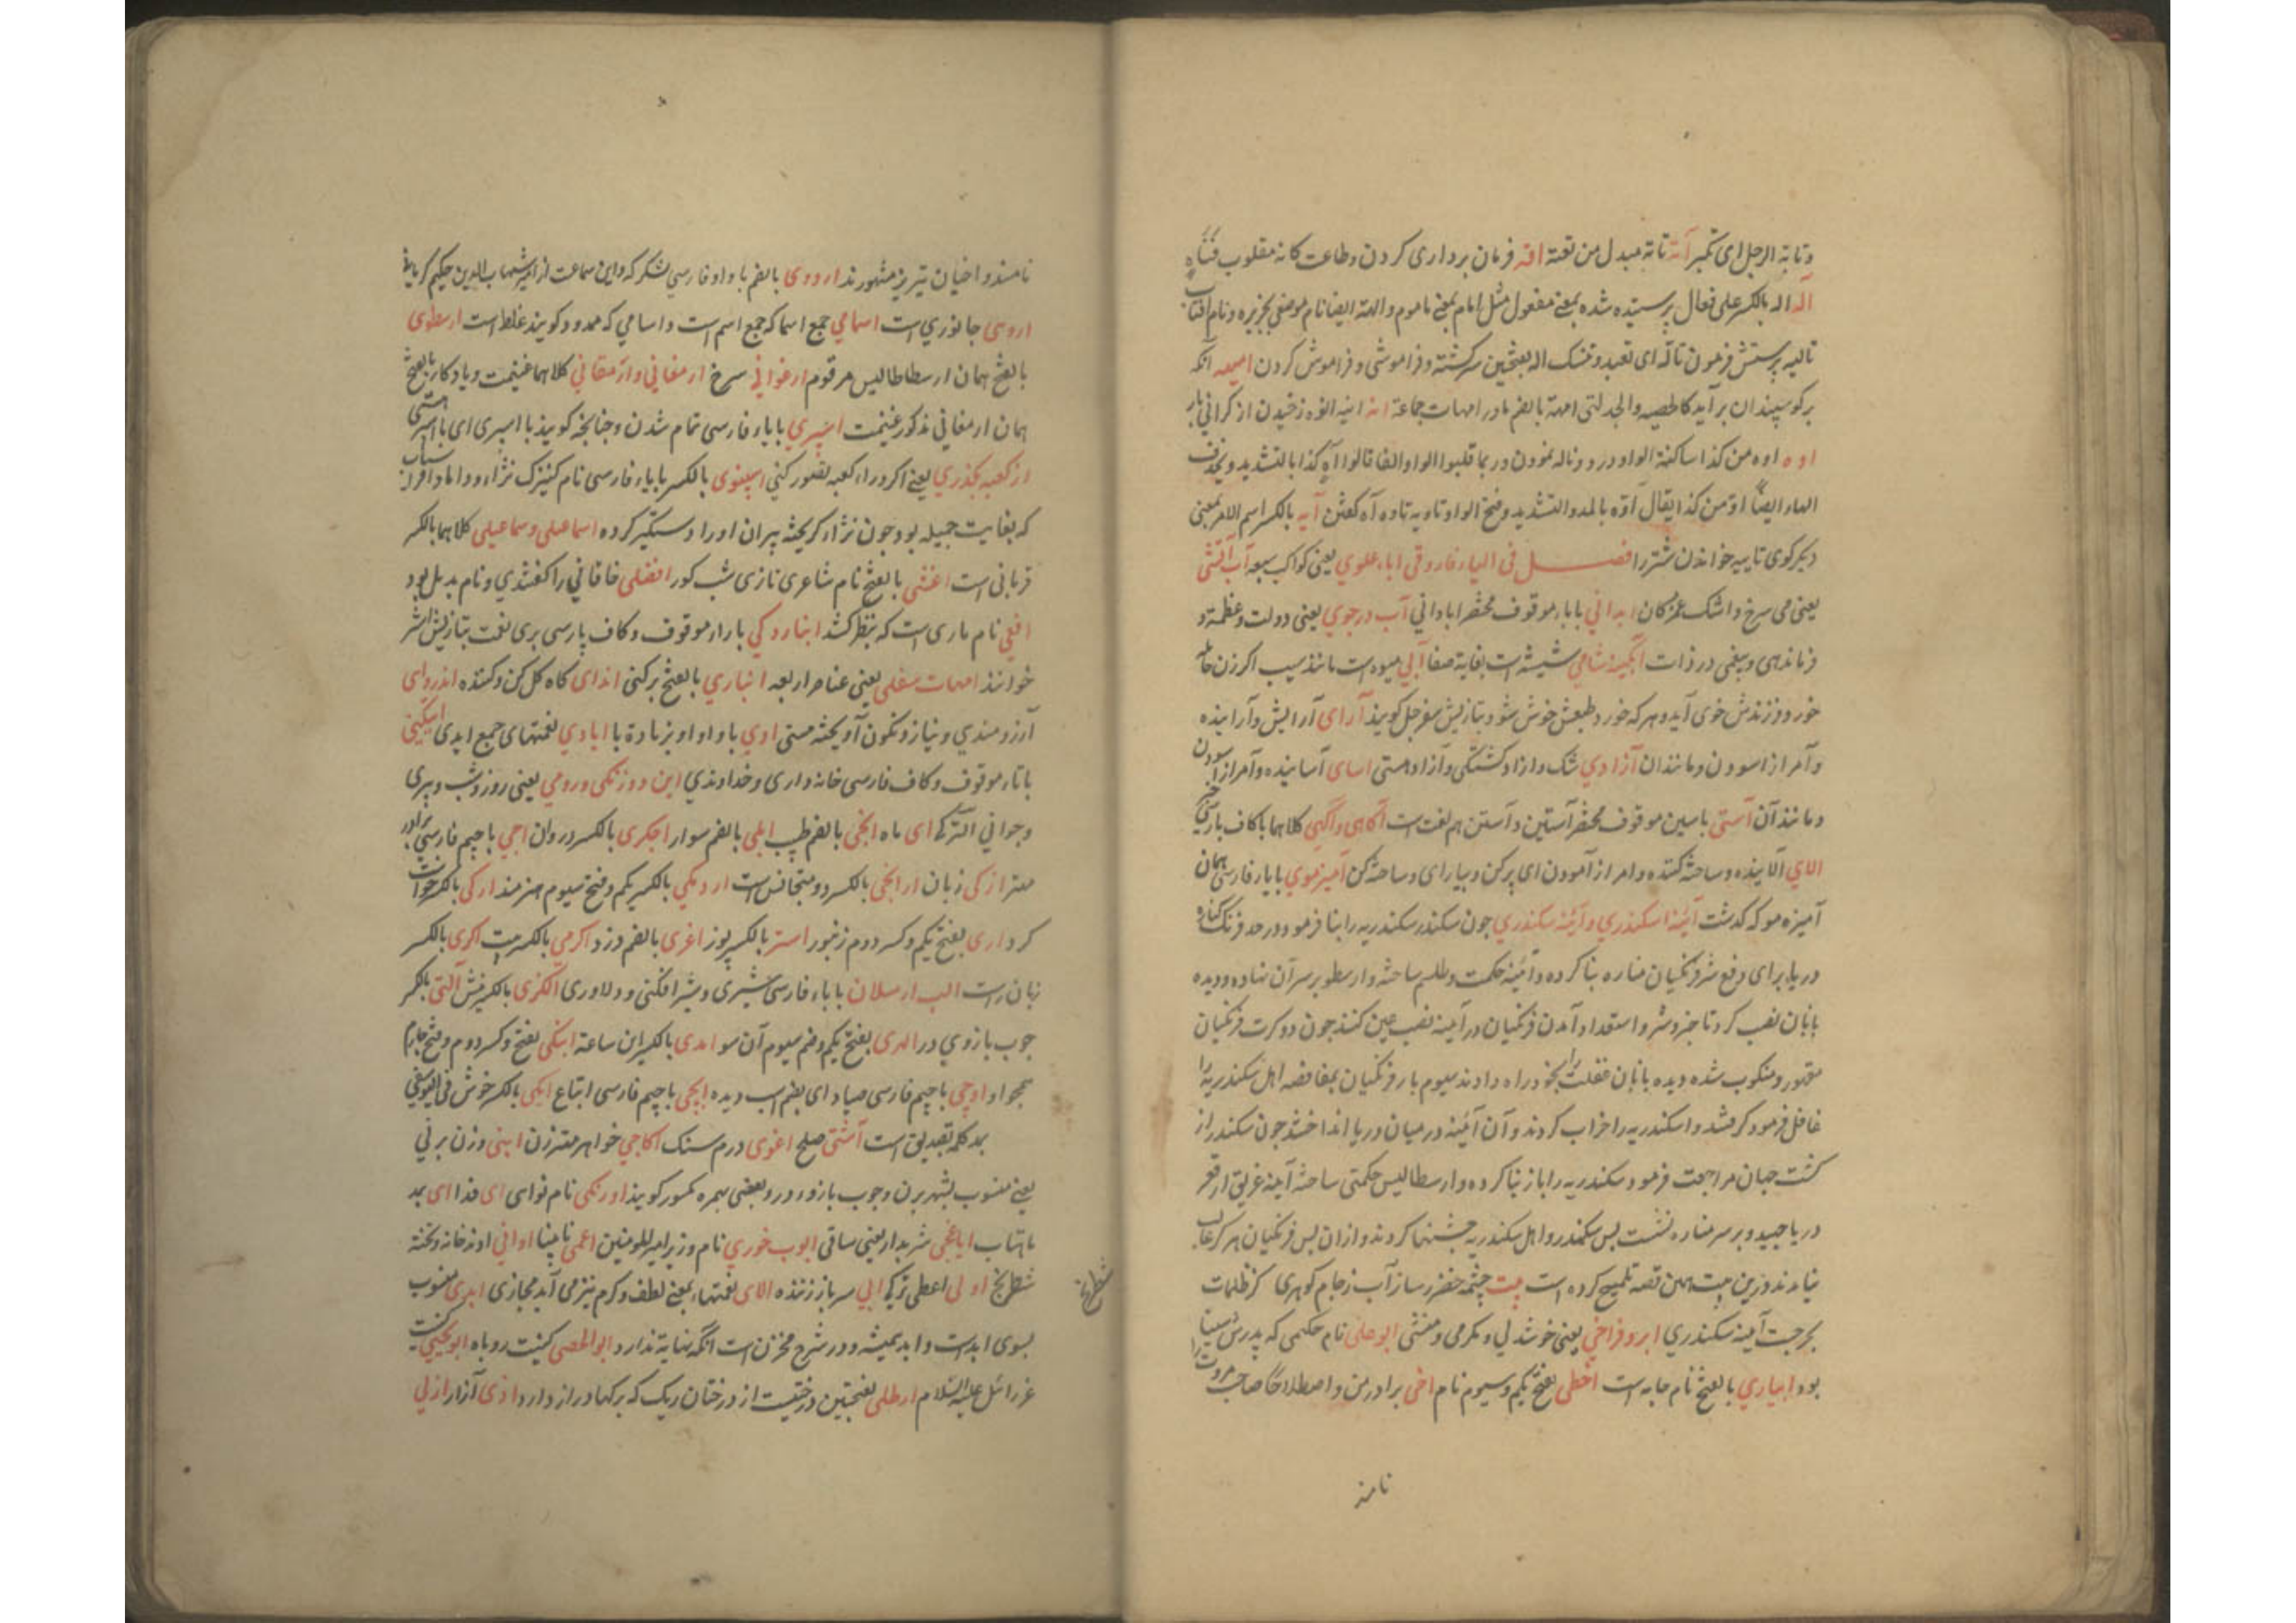 وتابة الرجل ای تکبر آنة تاتة مبدل من تعتة اقه فرمان برداری کردن وطاعت کانه مقلوب قتاه
آله اله بالکسر علی فعال پرستیده شده بمعنی مفعول مثل امام بمعنی ماموم والهة ایضا نام موضعی بجزیره ونام افتاب
تالیه پرستش فرمودن تاله ای تعبد وتنسک اله بفتحین سرکشته وفراموشی وفراموش کردن امیهه آنکه
بر کوسپندان برآید کالحصبه والجدلتی امهة بالضم مادر امهات جماعة انه انیه انوه زخیدن از کرانی بار
اوه اوه من کذا ساکنة الواو درد وناله نمودن وربما قلبوا الواو الفا قالوا آه کذا بالتشدید ویحذف
الهاء ایضا اوّ من کذا یقال آوّه بالمد والتشدید وفتح الواو تاویه تاوه آه کفتن آیه بالکسر اسم الامر بمعنی
دیکر کوی تاییه خواندن شتر را فصل فی الیاء فاروقی اباء علوی یعنی کواکب سبعه آب آتشی
یعنی می سرخ واشک غمزدکان ابدانی باباء موقوف مختصر ابادانی آب در جوی یعنی دولت وعظمة و
فرماندهی وبیغمی در ذات ابکینه شامی شیشه است بغایة صفا آبی میوه است مانند سیب اکر زن حامله
خورد فرزندش خوی آید وهر که خورد طبعش خوش شود وبتازیش سفرجل کویند آرای آرایش وآراینده
وآمر از اسودن ومانند آن آزادی شک وازاد کشتکی وآزاد مستی اسای آساینده وآمر از آسودن
ومانند آن آستی باسین موقوف مختصر آستین وآستن هم لغت است آکاهی وآکهی کلاهما باکاف پارسی خبر
الای آلاینده وساخته کننده وامر از آمودن ای پر کن وبیارای وساخته کن آمیز موی بایاء فارسی همان
آمیزه مو که کدشت آئینه اسکندری وآئینه سکندری جون سکندر سکندریه را بنا فرمود ودر حد فرنک کناره
دریا برای دفع شر فرنکیان مناره بنا کرده وآئینه حکمت وطلسم ساخته وارسطو بر سر آن نهاده ودیده
بانان نصب کرد تا خیر وشر واستعداد آمدن فرنکیان در آیینه نصب عین کنند جون دو کرت فرنکیان
مقهور ومنکوب شده دیده بانان غفلت را بخود راه دادند سیوم بار فرنکیان بمغافصه اهل سکندریه را
غافل فرمود کرفتند واسکندریه را خراب کردند وآن آئینه در میان دریا انداختند جون سکندر از
کشت جهان مراجعت فرمود سکندریه را باز بنا کرده وارسطالیس حکمتی ساخته آینه غریق از قعر
دریا جهید وبر سر مناره نشست پس سکندر واهل سکندریه جشنها کردند وازان پس فرنکیان هر کز غالب
نیامدند وزین بیت همین قصه تلمیح کرده است بیت چشمه خضر ساز آب زجام کوهری کز ظلمات
بحر جست آینه سکندری ابرو فراخی یعنی خوشدلی ومکرمی ومنشی ابوعلی نام حکیمی که پدرش سینا
بود ابیاری بالفتح نام جامه است اخطی بفتح یکم وسیوم نام اخی برادر من واصطلاحا صاحب مروت را
نامند
نامند واخیان تبریز مشهورند اردوی بالضم با واو فارسی لشکر که واین سماعت از امیر شهاب الدین حکیم کرمانی
اروسی جانوری است اسامی جمع اسما که جمع اسم است واسامی که ممدود کویند غلط است ارسطوی
بالفتح همان ارسطاطالیس مرقوم ارغوانی سرخ ارمغانی وارمقانی کلاهما غنیمت ویادکار بالفتح
همان ارمغانی مذکور غنیمت اسپری باباء فارسی تمام شدن وجنانجه کویند با اسپری ای با منتهی
از کعبه بکذری یعنی اکر در راه کعبه قصور کنی اسپغوی بالکسر باباء فارسی نام کنیزک نژاد داماد افراسیاب
که بغایت جمیله بود جون نژاد کریخته پیران اورا دستکیر کرده اسماعیلی وسماعیلی کلاهما بالکسر
قربانی است اعشی بالفتح نام شاعری تازی شب کور افضلی خاقانی را کفتندی ونام بدیل بود
افعی نام ماری است که بنظر کشد ابنارد کی باراء موقوف وکاف پارسی بری لغت بتازیش اشر
خوانند امهات سفلی یعنی عناصر اربعه انباری بالفتح برکنی اندای کاه کل کن وکننده اندروای
آرزومندی ونیاز ونکون آویخته مستی اوی باواو اوبزیادة با ایادی نعمتهای جمع ایدی ایتکینی
باتاء موقوف وکاف فارسی خانه داری وخداوندی این دو زنکی ورومی یعنی روز وشب وپیری
وجوانی الترکی ای ماه ابخی بالضم طبیب ابلی بالضم سوار اجکری بالکسر دروان اجی باجیم فارسی برادر
مهتر ازکی زبان ارانجی بالکسر دو متجانس است اردمکی بالکسر یکم وفتح سیوم هنرمند ارکی بالکسر خواست
کرد اری بفتح یکم وکسر دوم زنبور استر بالکسر پوز اغری بالضم وزد اکرمی بالکسر بیت اکری بالکسر
زبان راست الب ارسلان باباء فارسی شیری وشیرافکنی ودلاوری الکزی بالکسر پیش آلتی بالکسر
جوب بازوی در الری بفتح یکم وضم سیوم آن سو امدی بالکسر این ساعة اینکی بفتح وکسر دوم وفتح جهارم
همجو او اوجی باجیم فارسی صیاد ای بضم اسب دیده ایجی باجیم فارسی اتباع ایکی بالکسر خوش فی الیوسفی
بد کلمه تصدیق است آشتی صلح اغوی درم سنک اکاجی خواهر مهتر زن ابنی وزن برنی
یعنی منسوب بشهر برن وجوب بازوء در وبعضی بهمره کمسور کویند اورنکی نام نوای ای فدا ای بد
ماهتاب ایاغجی شربدار یعنی ساقی ایوب خوری نام وزیر امیر المومنین اعمی نابینا اوانی اوند خانه وتخته
شطرنج اولی اعطی ترکی ابی سر باز زننده الای نعتها بمعنی لطف وکرم نیز می آید مجازی ابدی منسوب
بسوی ابدست وابد همیشه ودر شرح مخزن است آنکه نهایة ندارد ابوالحصی کنیت روباه ابویحیی کنیت
عزرائل علیه السلام ارطلی بفتحتین درختیست از درختان ریک که برکها دراز دارد اذی آزار ازلی